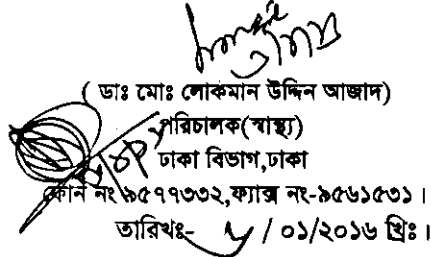 ( ডাঃ মোঃ লোকমান উদ্দিন আজাদ)
পরিচালক(স্বাস্থ্য)
ঢাকা বিভাগ,ঢাকা
ফোন নং ৯৫৭৭৩৩২,ফ্যাক্স নং-৯৫৬১৫৩১।
তারিখঃ- / ০১/২০১৬ খ্রিঃ।